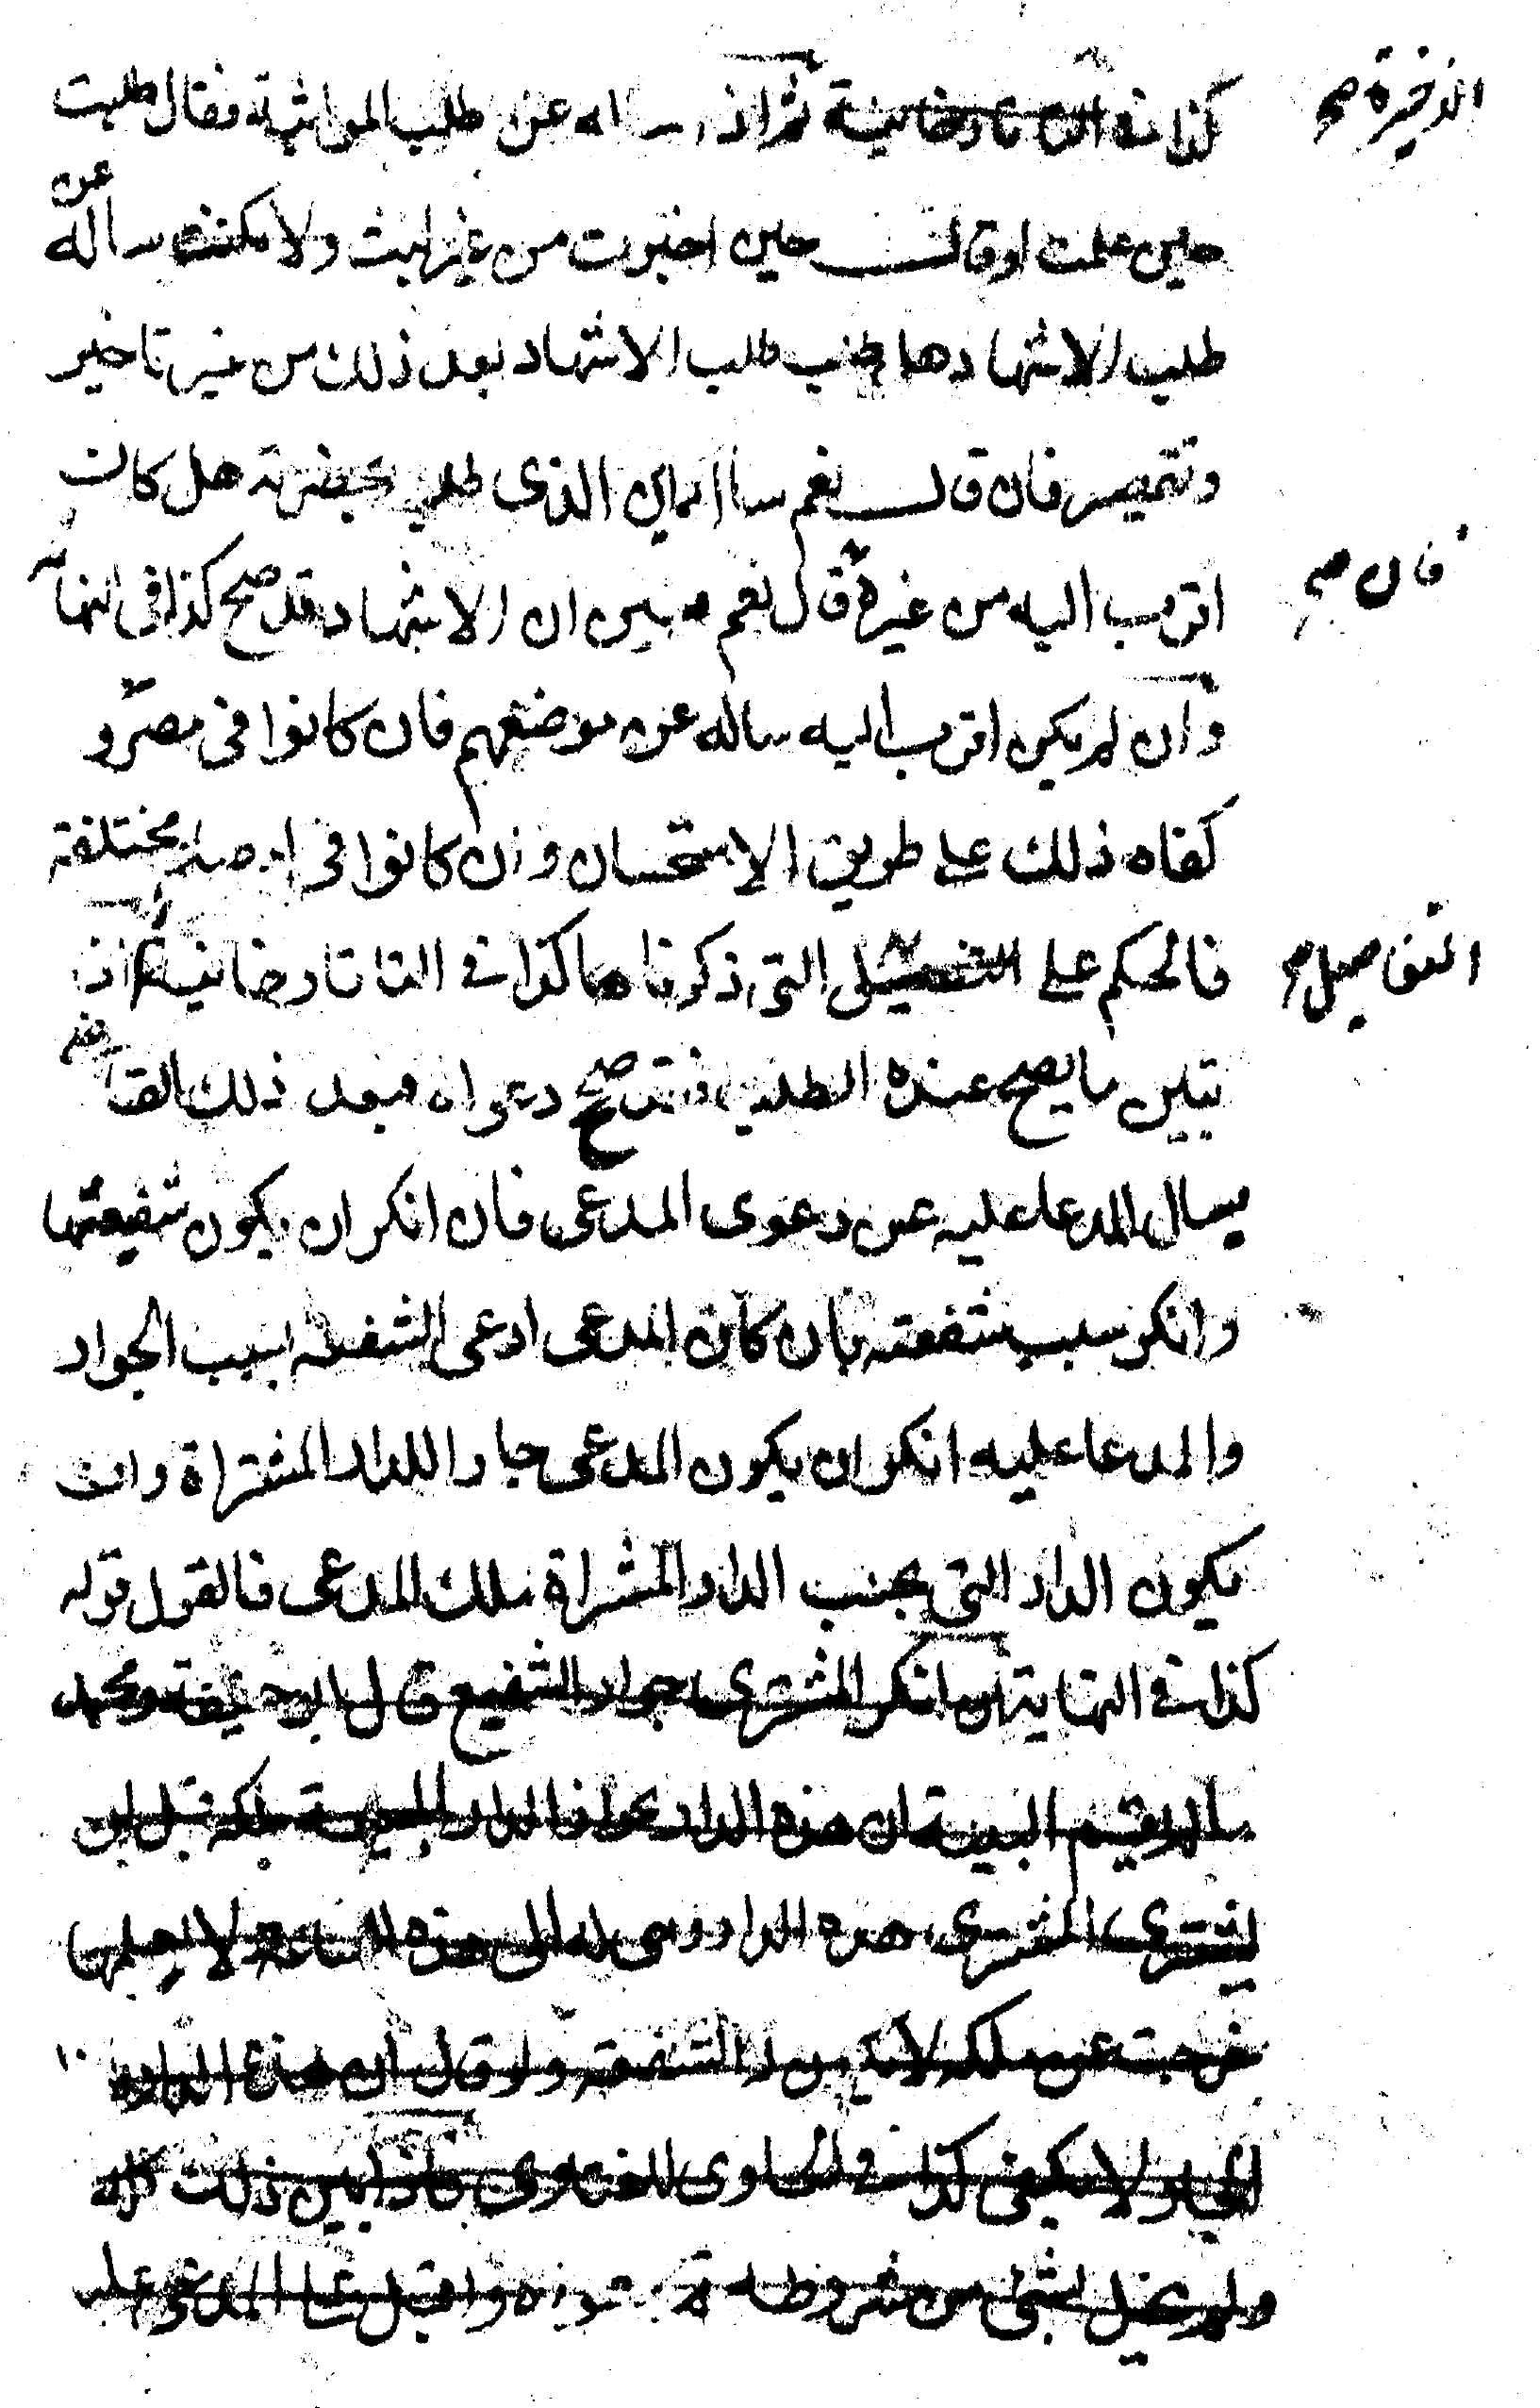 كذا في التاتارخانية ثم اذا ساله عن طلب المواثبة فقال طلبت
الذخيرة صح
حين علمت او قال حين اخبرت من غير لبث ولا مكث ساله عن
طلب الاشهاد هل طلب طلب الاشهاد بعد ذلك من غير تاخير
وتقصير فان قال نعم ساله الذي طلب بحضرته هل كان
اقرب اليه من غيره قال نعم تبين ان الاشهاد قد صح كذا في النهاية
فان صح
وان لم يكن اقرب اليه ساله عن موضعهم فان كانوا في مصر و
كفاه ذلك على طريق الاستحسان وان كانوا في امصار مختلفة
فالحكم على التي ذكرناها كذا في التاتارخانية اذا
التفاصيل صح
تبين ما يصح عنده الطلب فقد صح دعواه فبعد ذلك القاضي
يسال المدعا عليه عن دعوى المدعى فان انكر ان يكون شفيعها
وانكر سبب شفعته بان كان المدعى ادعى الشفعة بسبب الجوار
والمدعا عليه انكر ان يكون المدعى جار الدار المشتراة وان
يكون الدار التي بجنب الدار المشراة ملك المدعى فالقول قوله
كذا في النهاية ان انكر المشترى جوار الشفيع قال ابو حنيفة ومحمد
البينة ان هذه الدار الدار ملكه قبل ان
يشترى المشترى هذه الدار وهي له الى هذه الساعة لا نعلمها
خرجت عن ملكه لا الشفعة ولو قال ان هذه الدار
الجار لا يكفي كذا في الحاوى الفتاوى فاذا بين ذلك كله
ولم يخل بشئ من شروطه واقبل على المدعى عليه